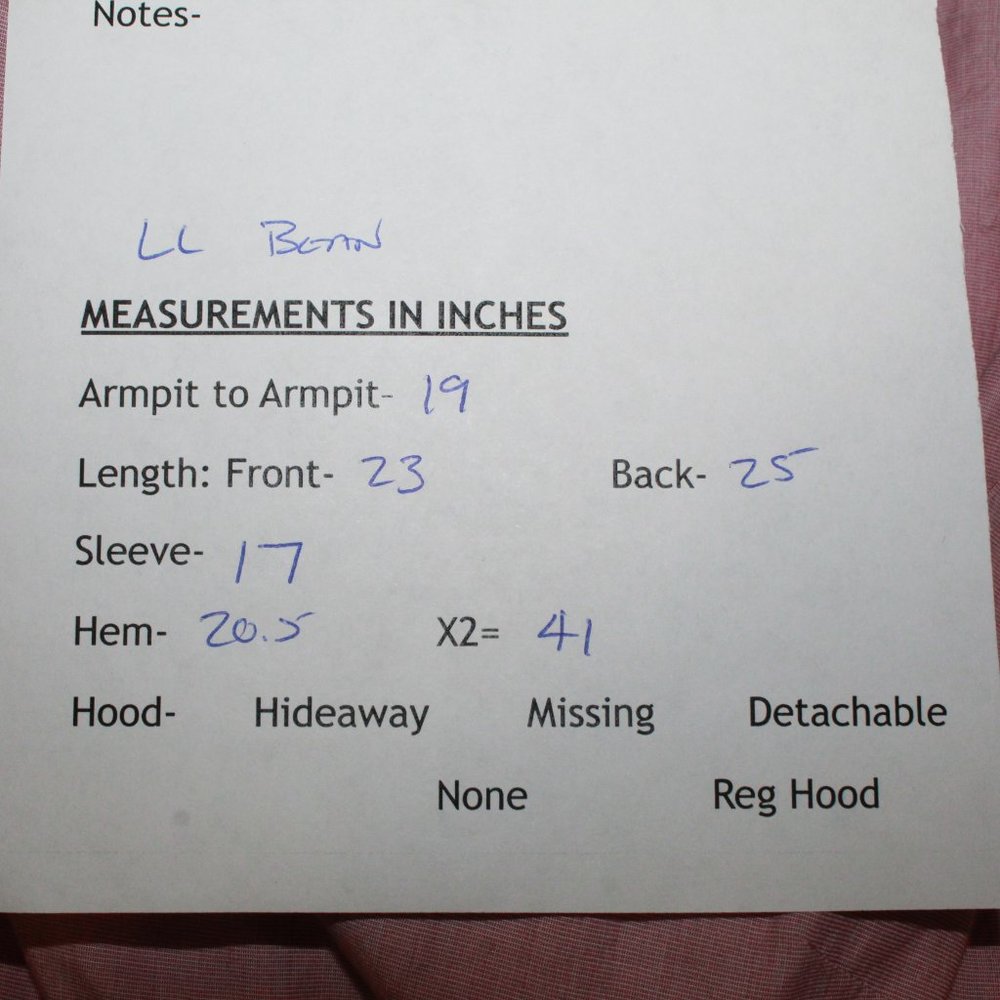 Notes-
LL BEAN
MEASUREMENTS IN INCHES
Armpit to Armpit- 19
Length: Front- 23 Back- 25
Sleeve- 17
Hem- 20.5 X2= 41
Hood- Hideaway Missing Detachable
None Reg Hood